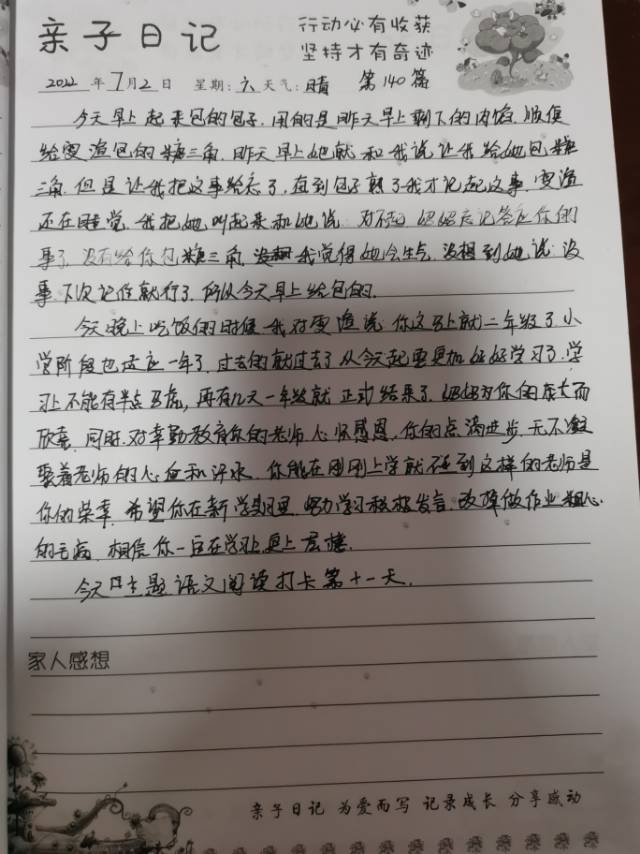 亲子日记
行动必有收获
坚持才有奇迹
2022年7月2日 星期:六 天气:晴 第140篇
今天早上起来包的包子,用的是昨天早上剩下的肉馅,顺便
给雯渔包的糖三角,昨天早上她就和我说让我给她包糖
三角,但是让我把这事给忘了,直到包子熟了我才记起这事,雯渔
还在睡觉,我把她叫起来和她说,对不起,妈妈忘记答应你的
事了,没有给你包糖三角,我觉得她会生气,没想到她说:没
事,下次记住就行了,所以今天早上给包的.
今天晚上吃饭的时候我对雯渔说,你这马上就二年级了,小
学阶段也适应一年了,过去的就过去了,从今起要更加好好学习了,学
习上不能有半点马虎,再有几天一年级就正式结束了,妈妈对你的成长而
欣喜,同时,对辛勤教育你的老师心怀感恩,你的点滴进步,无不凝
聚着老师的心血和汗水,你能在刚刚上学就碰到这样的老师是
你的荣幸,希望你在新学期里,努力学习积极发言,改掉做作业粗心
的毛病,相信你一定在学习上更上层楼.
今天口主题语文阅读打卡第十一天.
家人感想
亲子日记 为爱而写 记录成长 分享感动